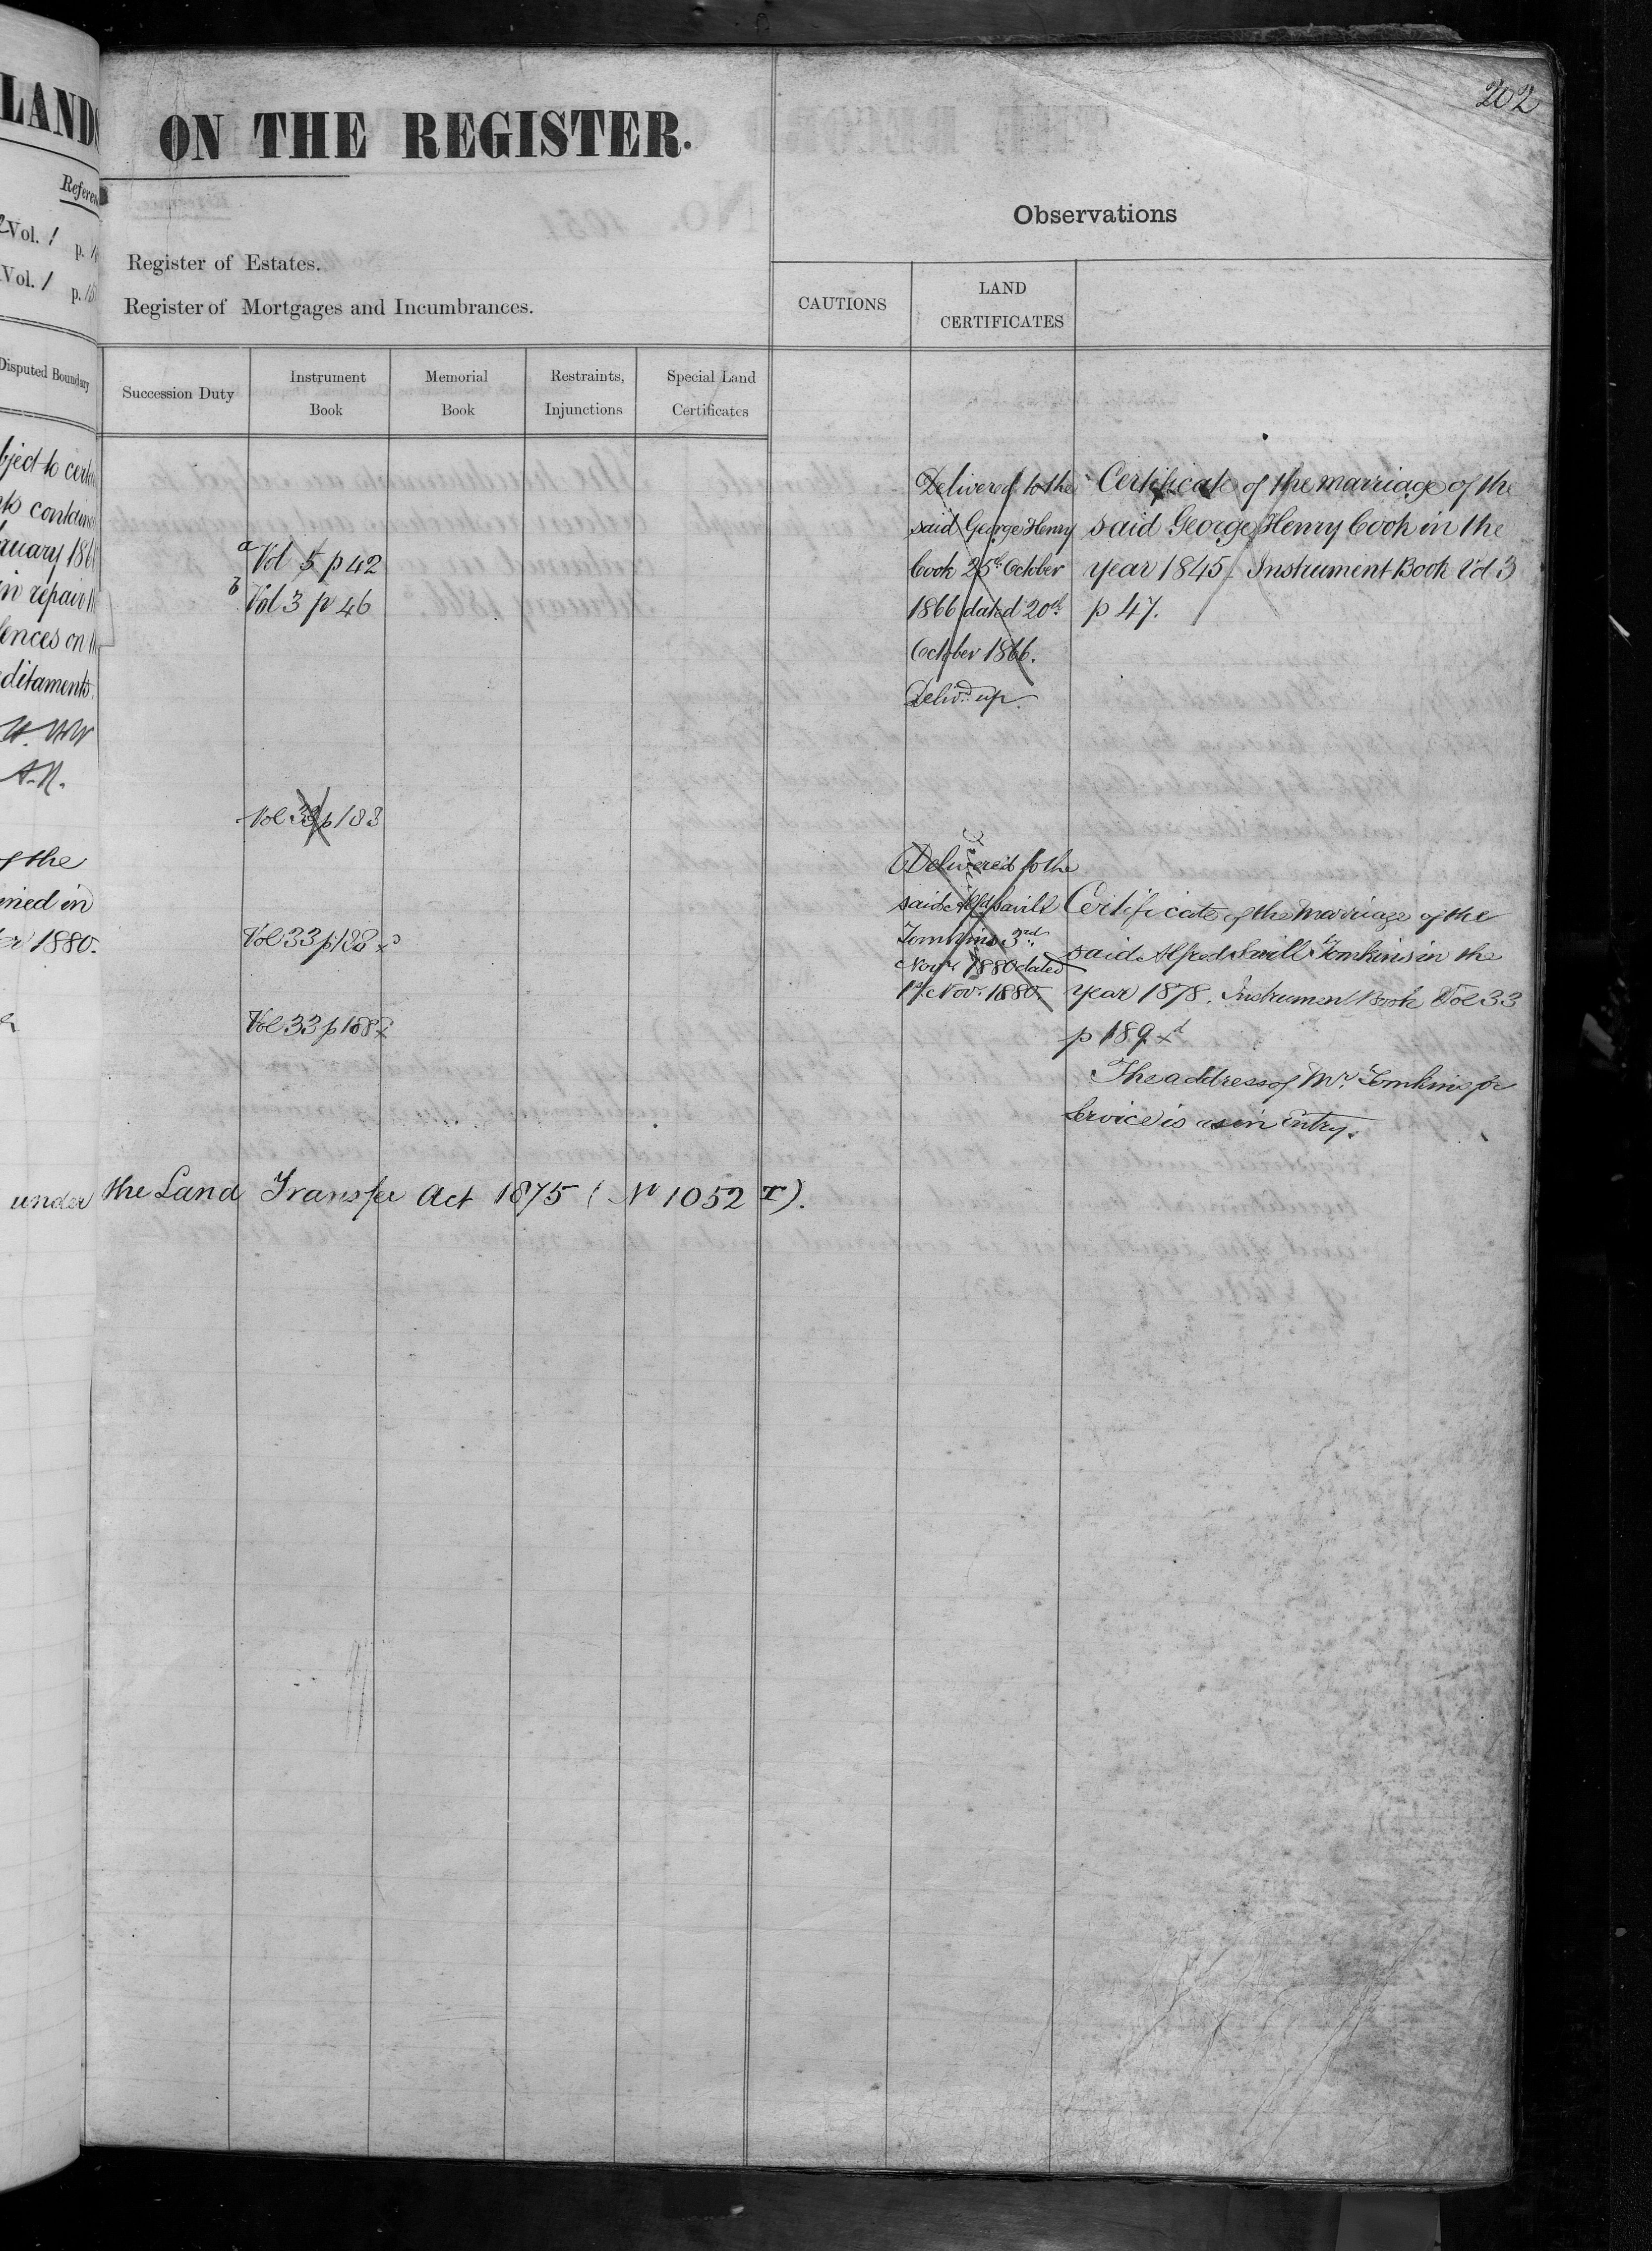 202
LANDS
ON THE REGISTER.
Observations
Vol. 1 p.
Vol. 1 p. 15
Register of Estates.
Register of Mortgages and Incumbrances.
CAUTIONS
LAND
CERTIFICATES
Disputed Boundary
Succession Duty
Instrument
Book
Memorial
Book
Restraints,
Injunctions
Special Land
Certificates
a Vol 5 p 42
b Vol 3 p 46
Vol 33 p 183
Vol 33 p 188
Vol 33 p 188
Delivered to the
said George Henry
Cook 25th October
1866 dated 20th
October 1866.
Delivd. up.
Delivered to the
said Alfd Savill
Tomkins 3rd
Novr 1880 dated
1st Nov. 1880.
Certificate of the marriage of the
said George Henry Cook in the
year 1845. Instrument Book Vol 3
p 47.
Certificate of the Marriage of the
said Alfred Savill Tomkins in the
year 1878. Instrument Book Vol 33
p 189
The address of Mr. Tomkins for
Service is as in Entry.
in repair
fences on
of the
1880.
under the Land Transfer Act 1875 (No 1052 T).